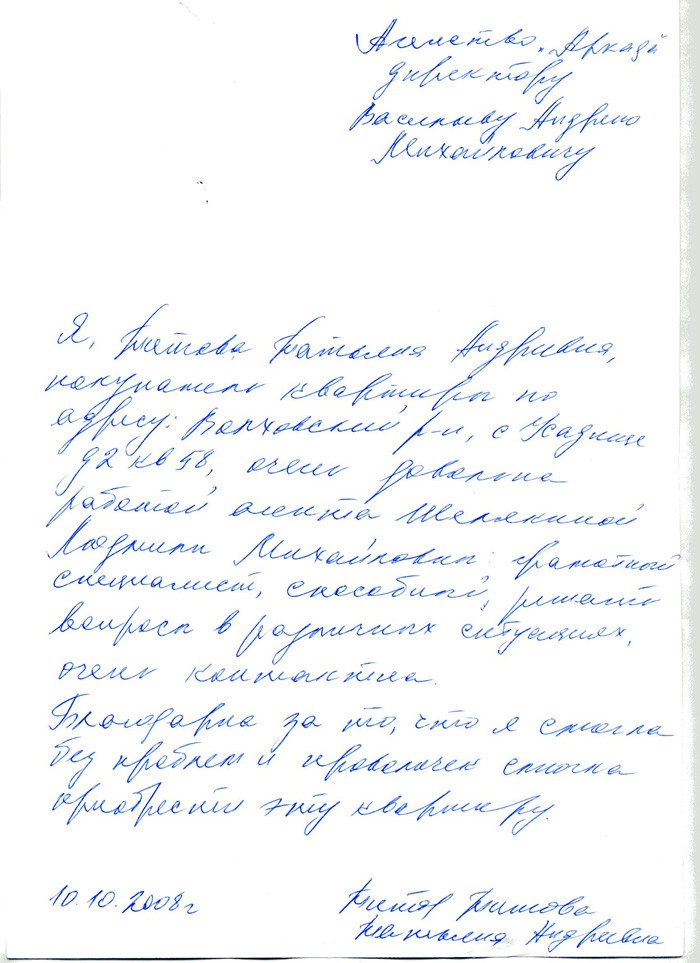 Агенство "Аркада"
директору
Васильеву Андрею
Михайловичу
Я, Татьяна Андреевна,
покупатель квартиры по
адресу: Волховский р-н, с Усадище
д2 кв 58, очень довольна
работой агента
Людмилы Михайловны: грамотный
специалист, способный решать
вопросы в различных ситуациях,
очень контактна.
Благодарна за то, что я смогла
без проблем и проволочек смогла
приобрести эту квартиру.
10.10.2008г
Татьяна Андреевна